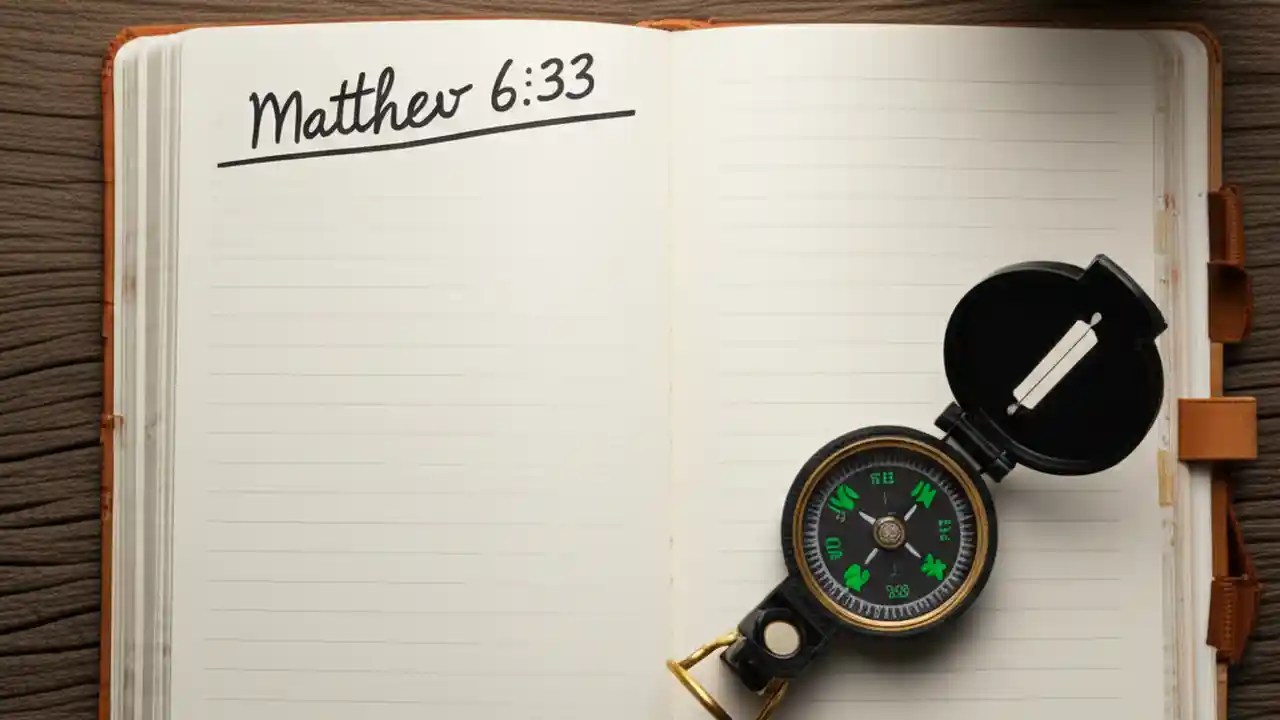 Matthew 6:33